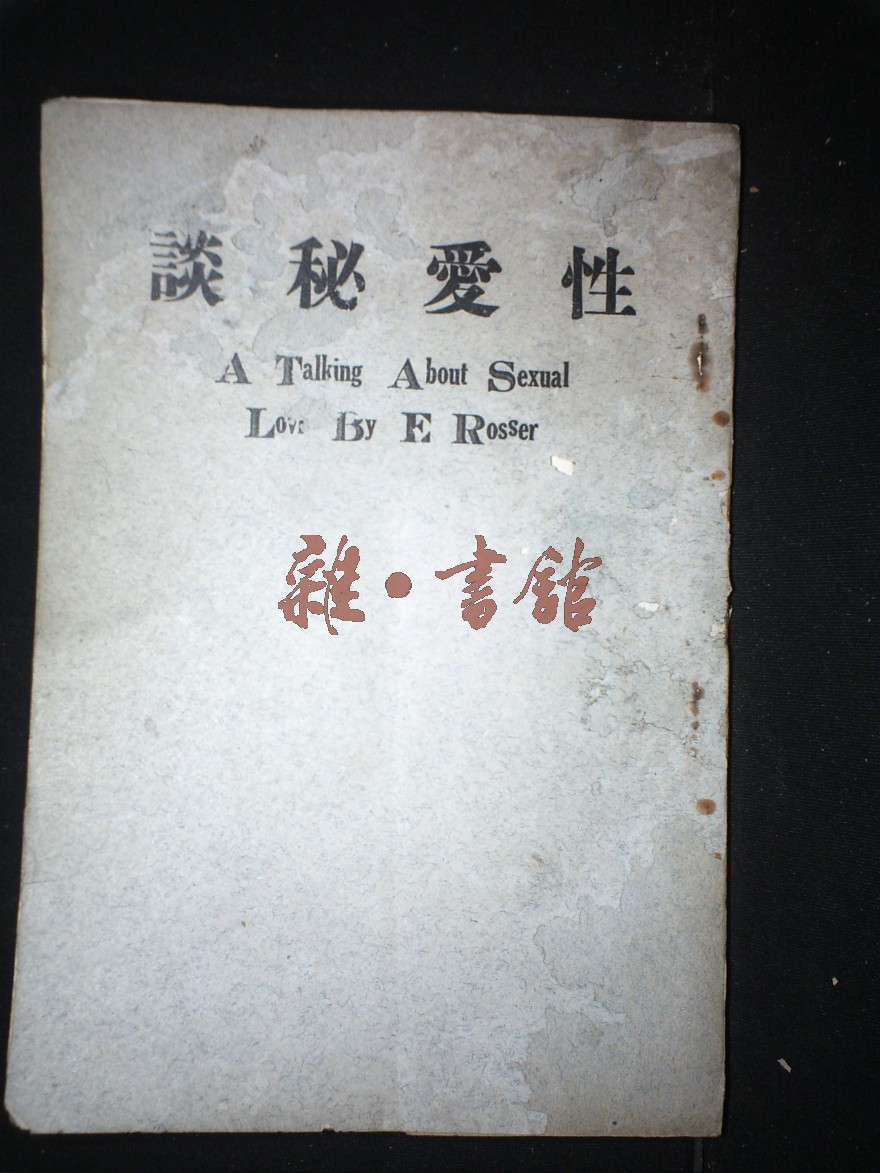 性愛秘談
A Talking About Sexual
Love By E Rosser
雜•書館